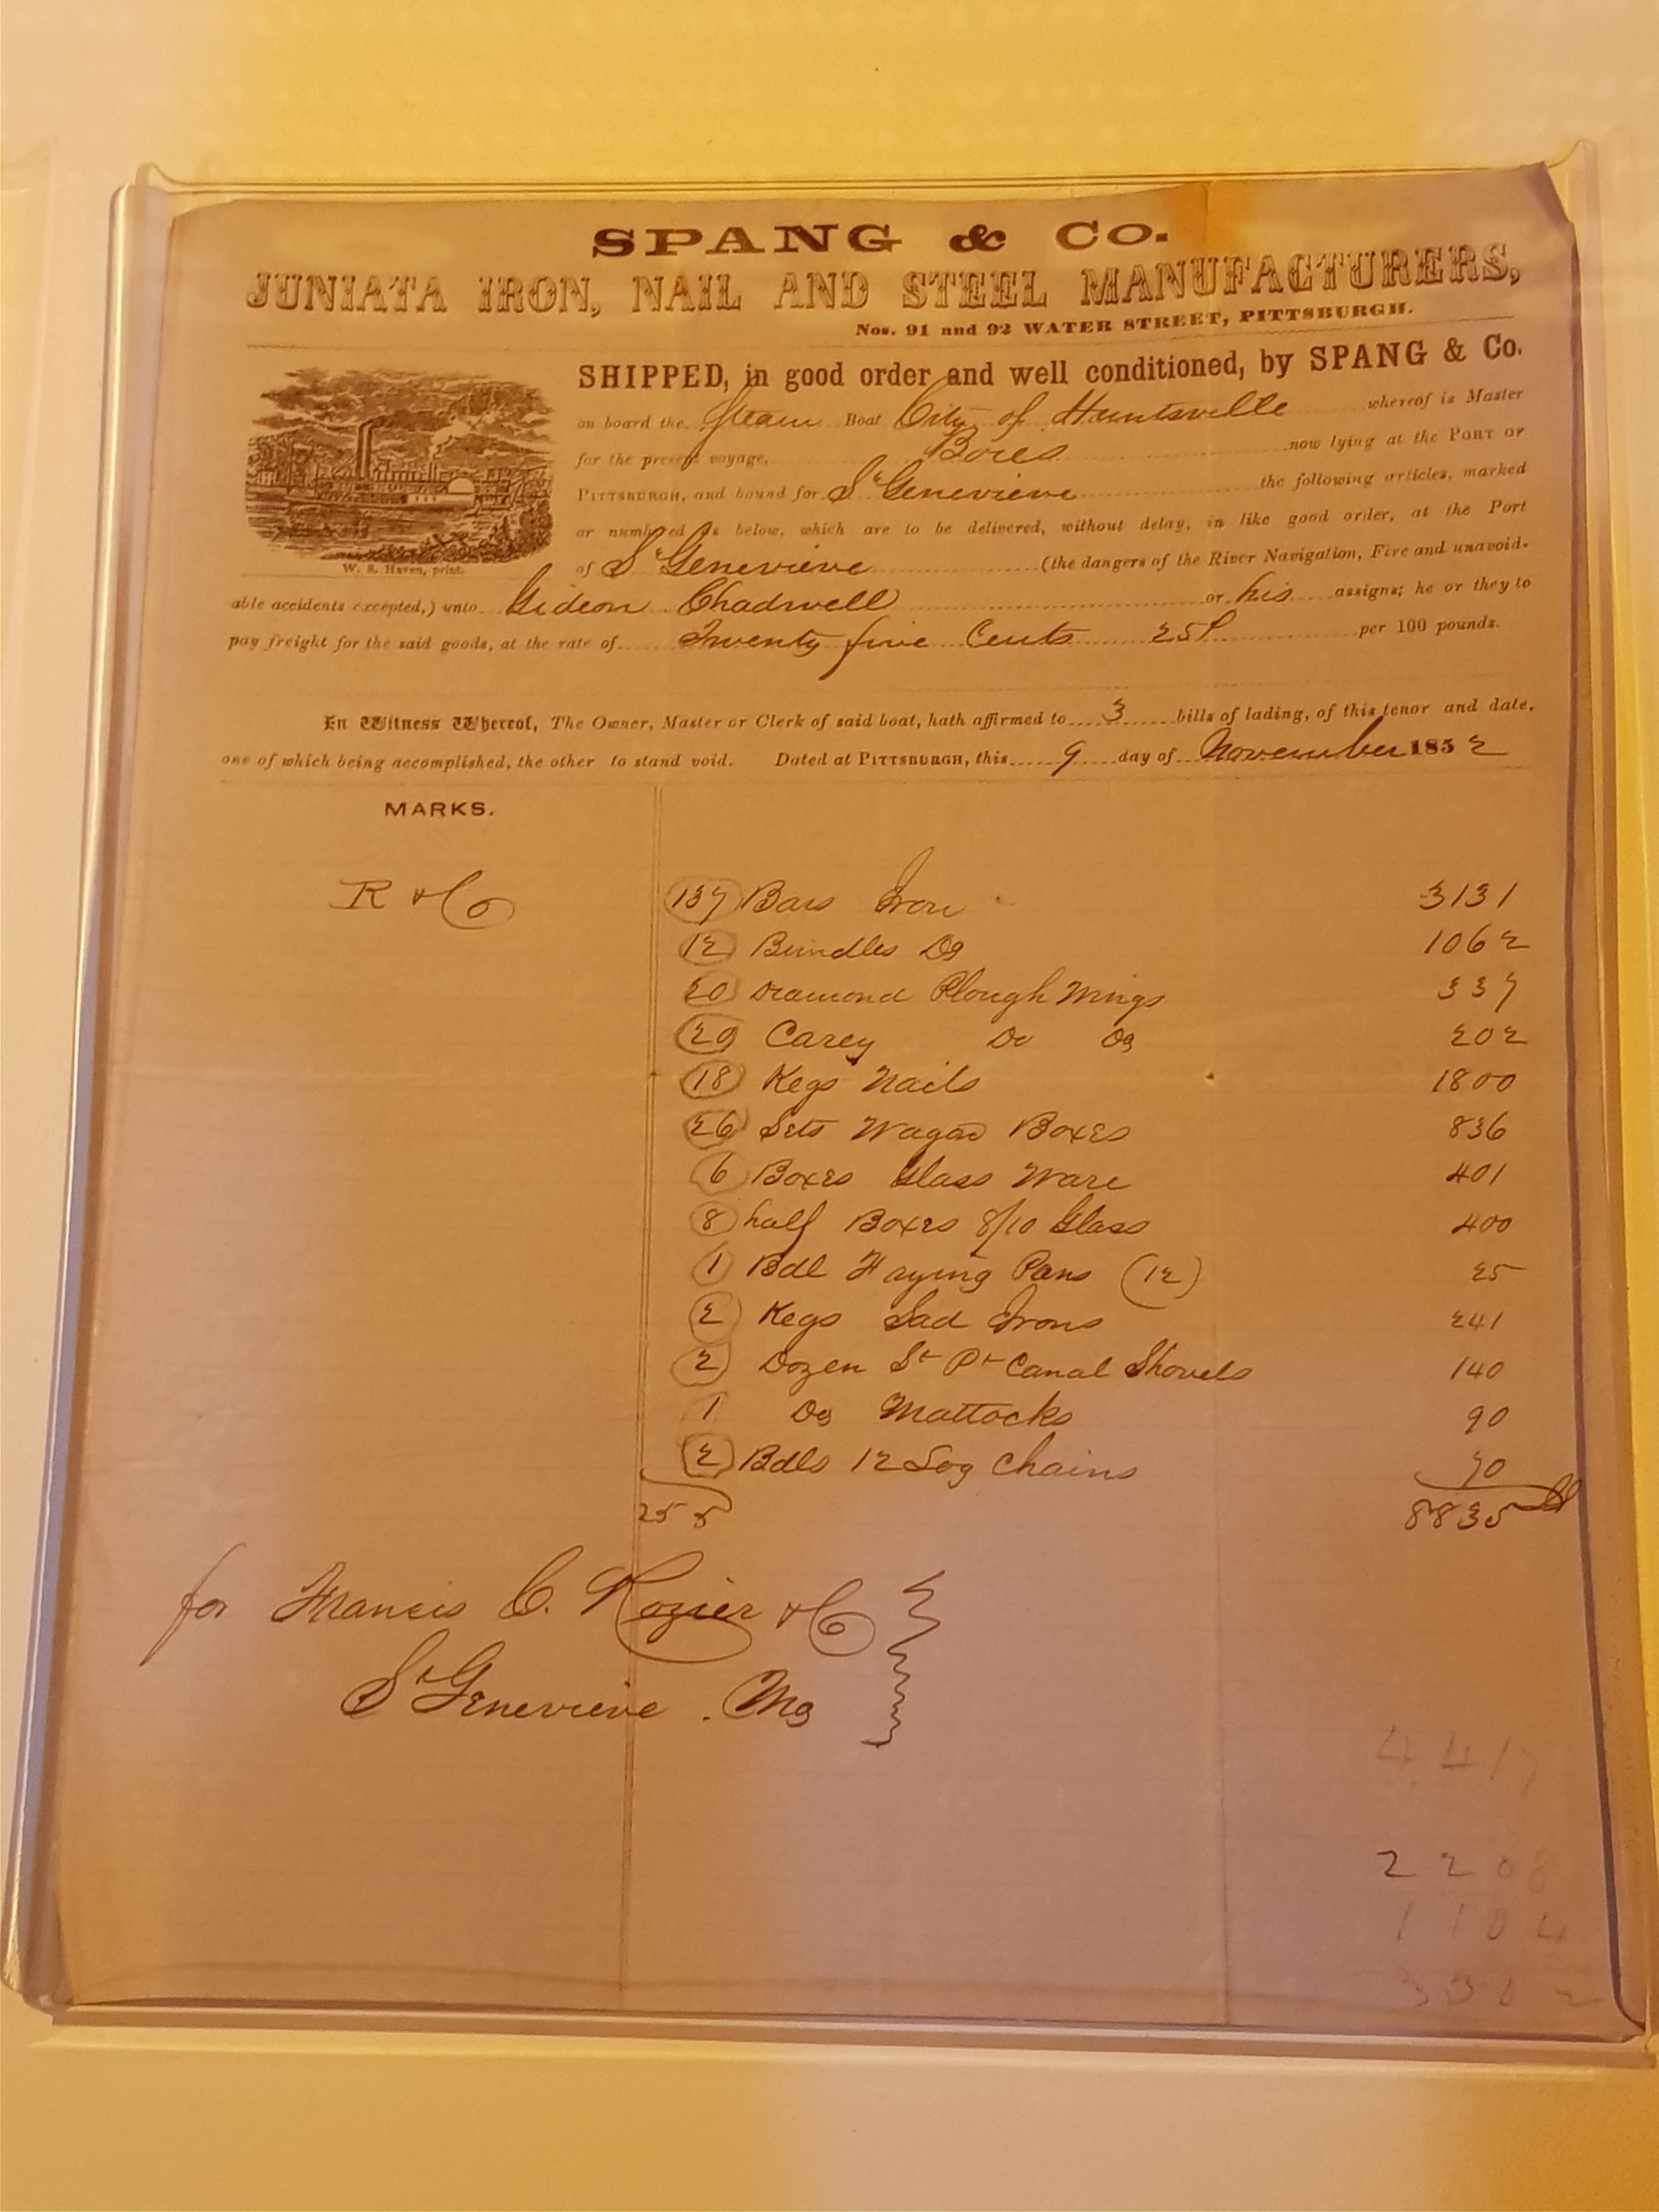 SPANG & CO.
JUNIATA IRON, NAIL AND STEEL MANUFACTURERS,
Nos. 91 and 92 WATER STREET, PITTSBURGH.
SHIPPED, in good order and well conditioned, by SPANG & Co.
on board the Steam Boat City of Huntsville whereof is Master
for the present voyage, Bores now lying at the PORT OF
PITTSBURGH, and bound for St Genevieve the following articles, marked
or numbered as below, which are to be delivered, without delay, in like good order, at the Port
W. S. Haven, print.
of St Genevieve (the dangers of the River Navigation, Fire and unavoid-
able accidents excepted,) unto Gideon Chadwell or his assigns; he or they to
pay freight for the said goods, at the rate of Twenty five Cents 25 per 100 pounds.
In Witness Whereof, The Owner, Master or Clerk of said boat, hath affirmed to 3 bills of lading, of this tenor and date,
one of which being accomplished, the other to stand void. Dated at PITTSBURGH, this 9 day of November 1852
MARKS.
R & Co 137 Bars Iron 3131
12 Bundles Do 1062
20 Diamond Plough Wings 337
20 Carey Do Do 202
18 Kegs Nails 1800
26 Sets Wagon Boxes 836
6 Boxes Glass Ware 401
8 half Boxes 8/10 Glass 400
1 Bdl Frying Pans (12) 25
2 Kegs Sad Irons 241
2 Dozen St Pt Canal Shovels 140
1 Do Mattocks 90
2 Bdls 12 Log Chains 70
255 8835
for Francis C. Rozier & Co
St Genevieve . Mo
4417
2208
1104